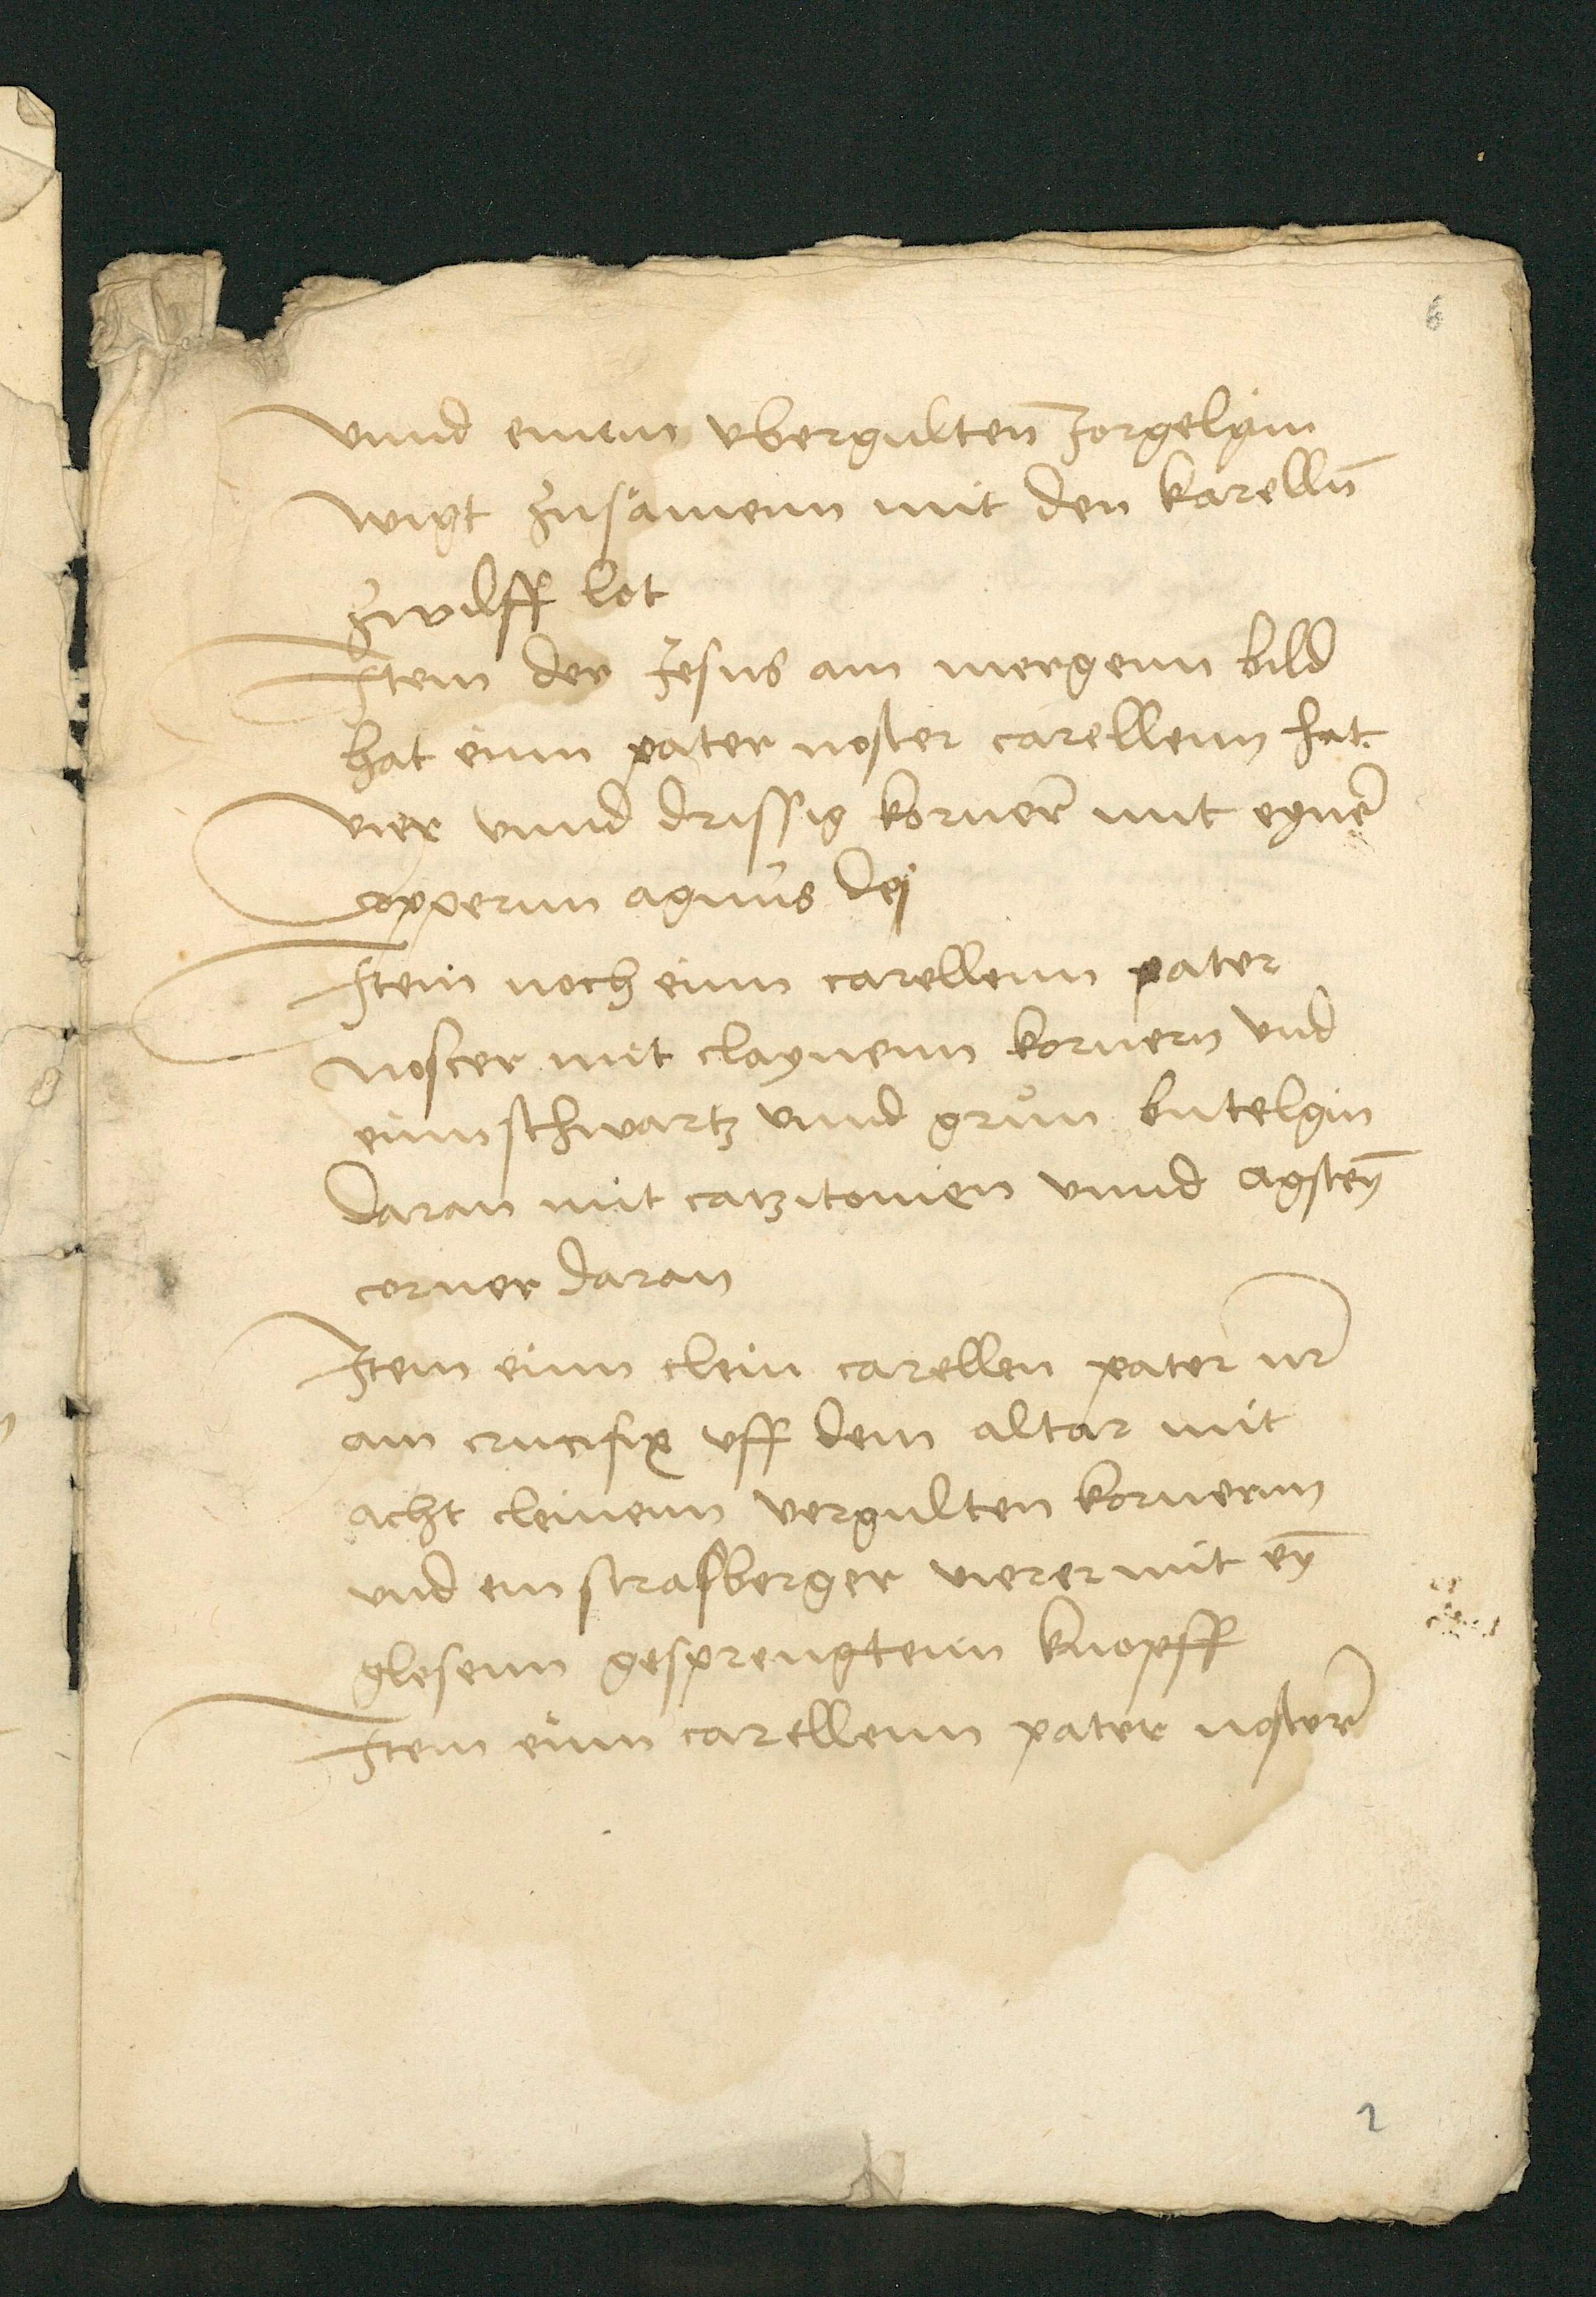 6
vnnd einem vbergulten Jorgelgin
wigt zusamenn mit den karelln̄
zwulff lot
Item der Jesus am mergenn bild
hat einn pater noster carellenn hat
vier vnnd drissig korner mit eyner
copperinn agnus dej
Item noch einn carellenn pater
noster mit claynenn kornern vnd
einn schwartz vnnd grun butelgin
daran mit catzitonien vnnd agsteȳ
corner daran
Item einn clein carellen pater nr̄
am crucifix vff dem altar mit
acht cleinenn vergulten kornernn
vnd ein strasberger vierer mit eȳ
glesenn gesprengtenn knopff
Item einn carellenn pater noster
2